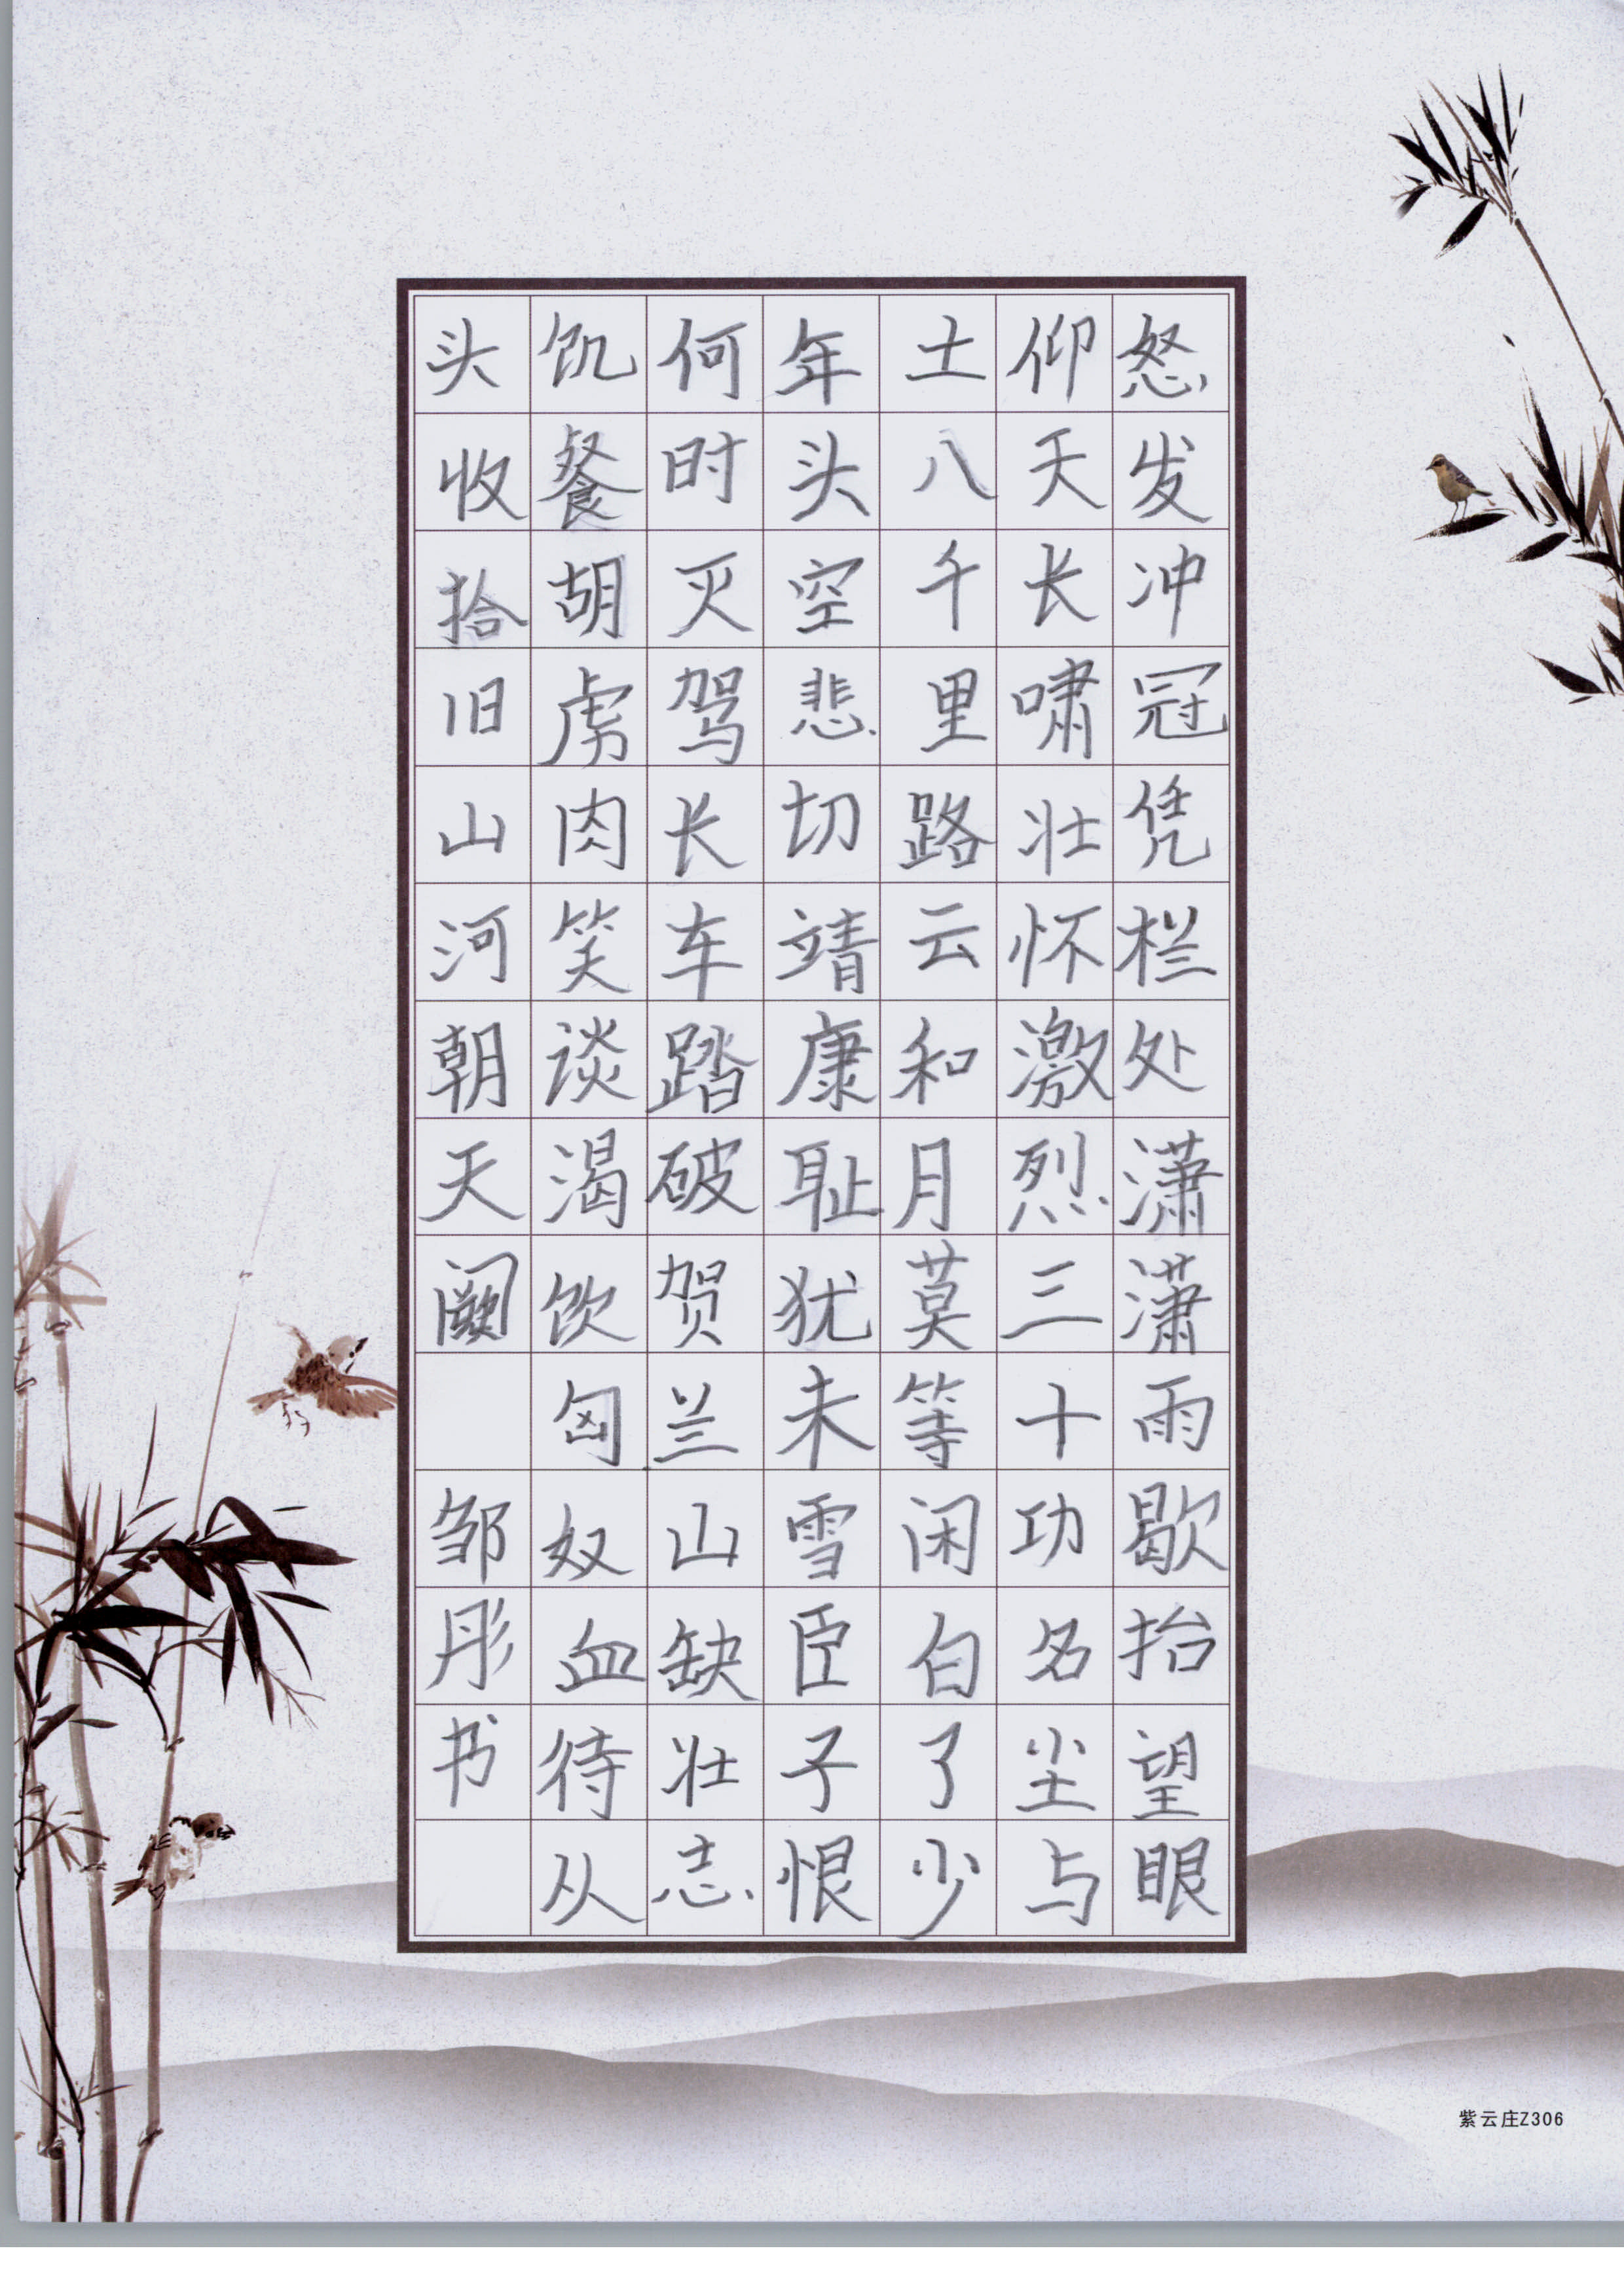 怒发冲冠凭栏处潇潇雨歇抬望眼
仰天长啸壮怀激烈三十功名尘与
土八千里路云和月莫等闲白了少
年头空悲切靖康耻犹未雪臣子恨
何时灭驾长车踏破贺兰山缺壮志
饥餐胡虏肉笑谈渴饮匈奴血待从
头收拾旧山河朝天阙 邹彤书
紫云庄Z306